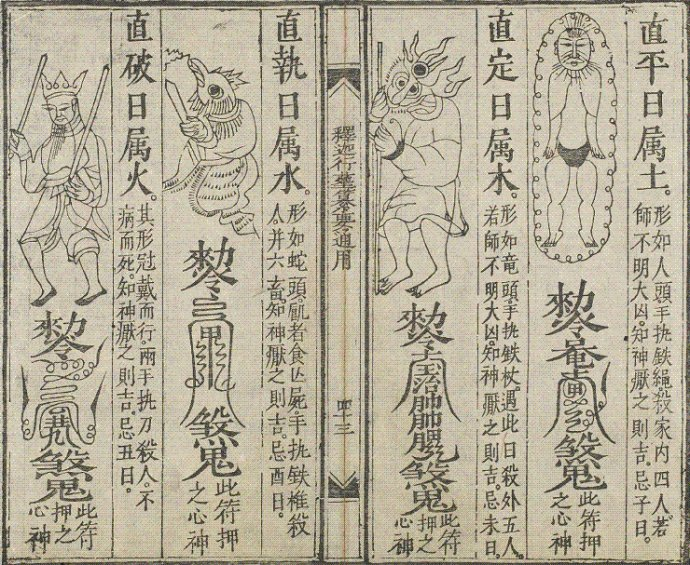 直平日属土。
形如人頭。手执铁绳殺家内四人。若
師不明大凶。知神厭之則吉。忌子日。
勅令
煞鬼
此符押
之心神
直定日属木。
形如竜頭。手执铁杖。遇此日殺外五人。
若師不明大凶。知神厭之則吉。忌未日。
勅令
煞鬼
此符
押之
心神
釋迦
通用
四十三
直執日属水。
形如蛇頭。飢者食亾屍。手执铁椎殺
人并六畜。知神厭之則吉。忌酉日。
勅令
煞鬼
此符押
之心神
直破日属火。
其形冠戴而行。兩手执刀殺人。不
病而死。知神厭之則吉。忌丑日。
勅令
煞鬼
此符
押之
心神